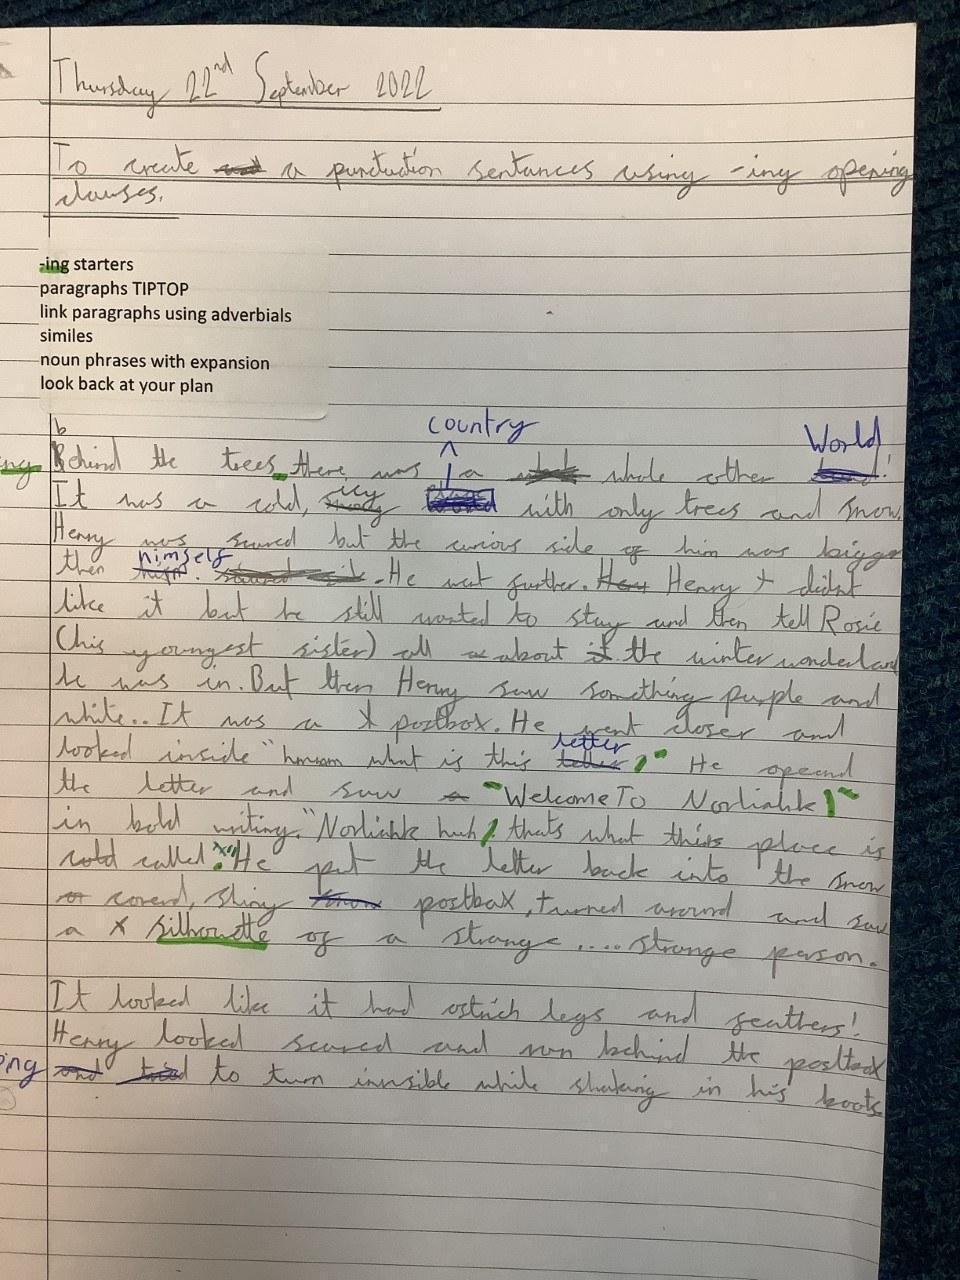 Thursday 22nd September 2022
To create a punctuation sentances using -ing opening
clauses.
-ing starters
paragraphs TIPTOP
link paragraphs using adverbials
similes
noun phrases with expansion
look back at your plan
b
country
World
ng Behind the trees there was a whole other !
It was a cold, icy with only trees and snow.
Henry was scared but the curious side of him was bigger
himself
then . He went further. Henry didnt
like it but he still wanted to stay and then tell Rosie
(his youngest sister) all about the winter wonderland
he was in. But then Henry saw something purple and
white.. It was a postbox. He went closer and
letter
looked inside "hmmm what is this ," He opend
the letter and saw "Welcome To Norliahk!"
in bold writing. "Norliahk huh, thats what this place is
called." He put the letter back into the snow
coverd, shiny postbox, turned around and saw
a silhouette of a strange .... strange person.
It looked like it had ostrich legs and feathers!
Henry looked scared and run behind the postbox
ing to turn invisible while shaking in his boots